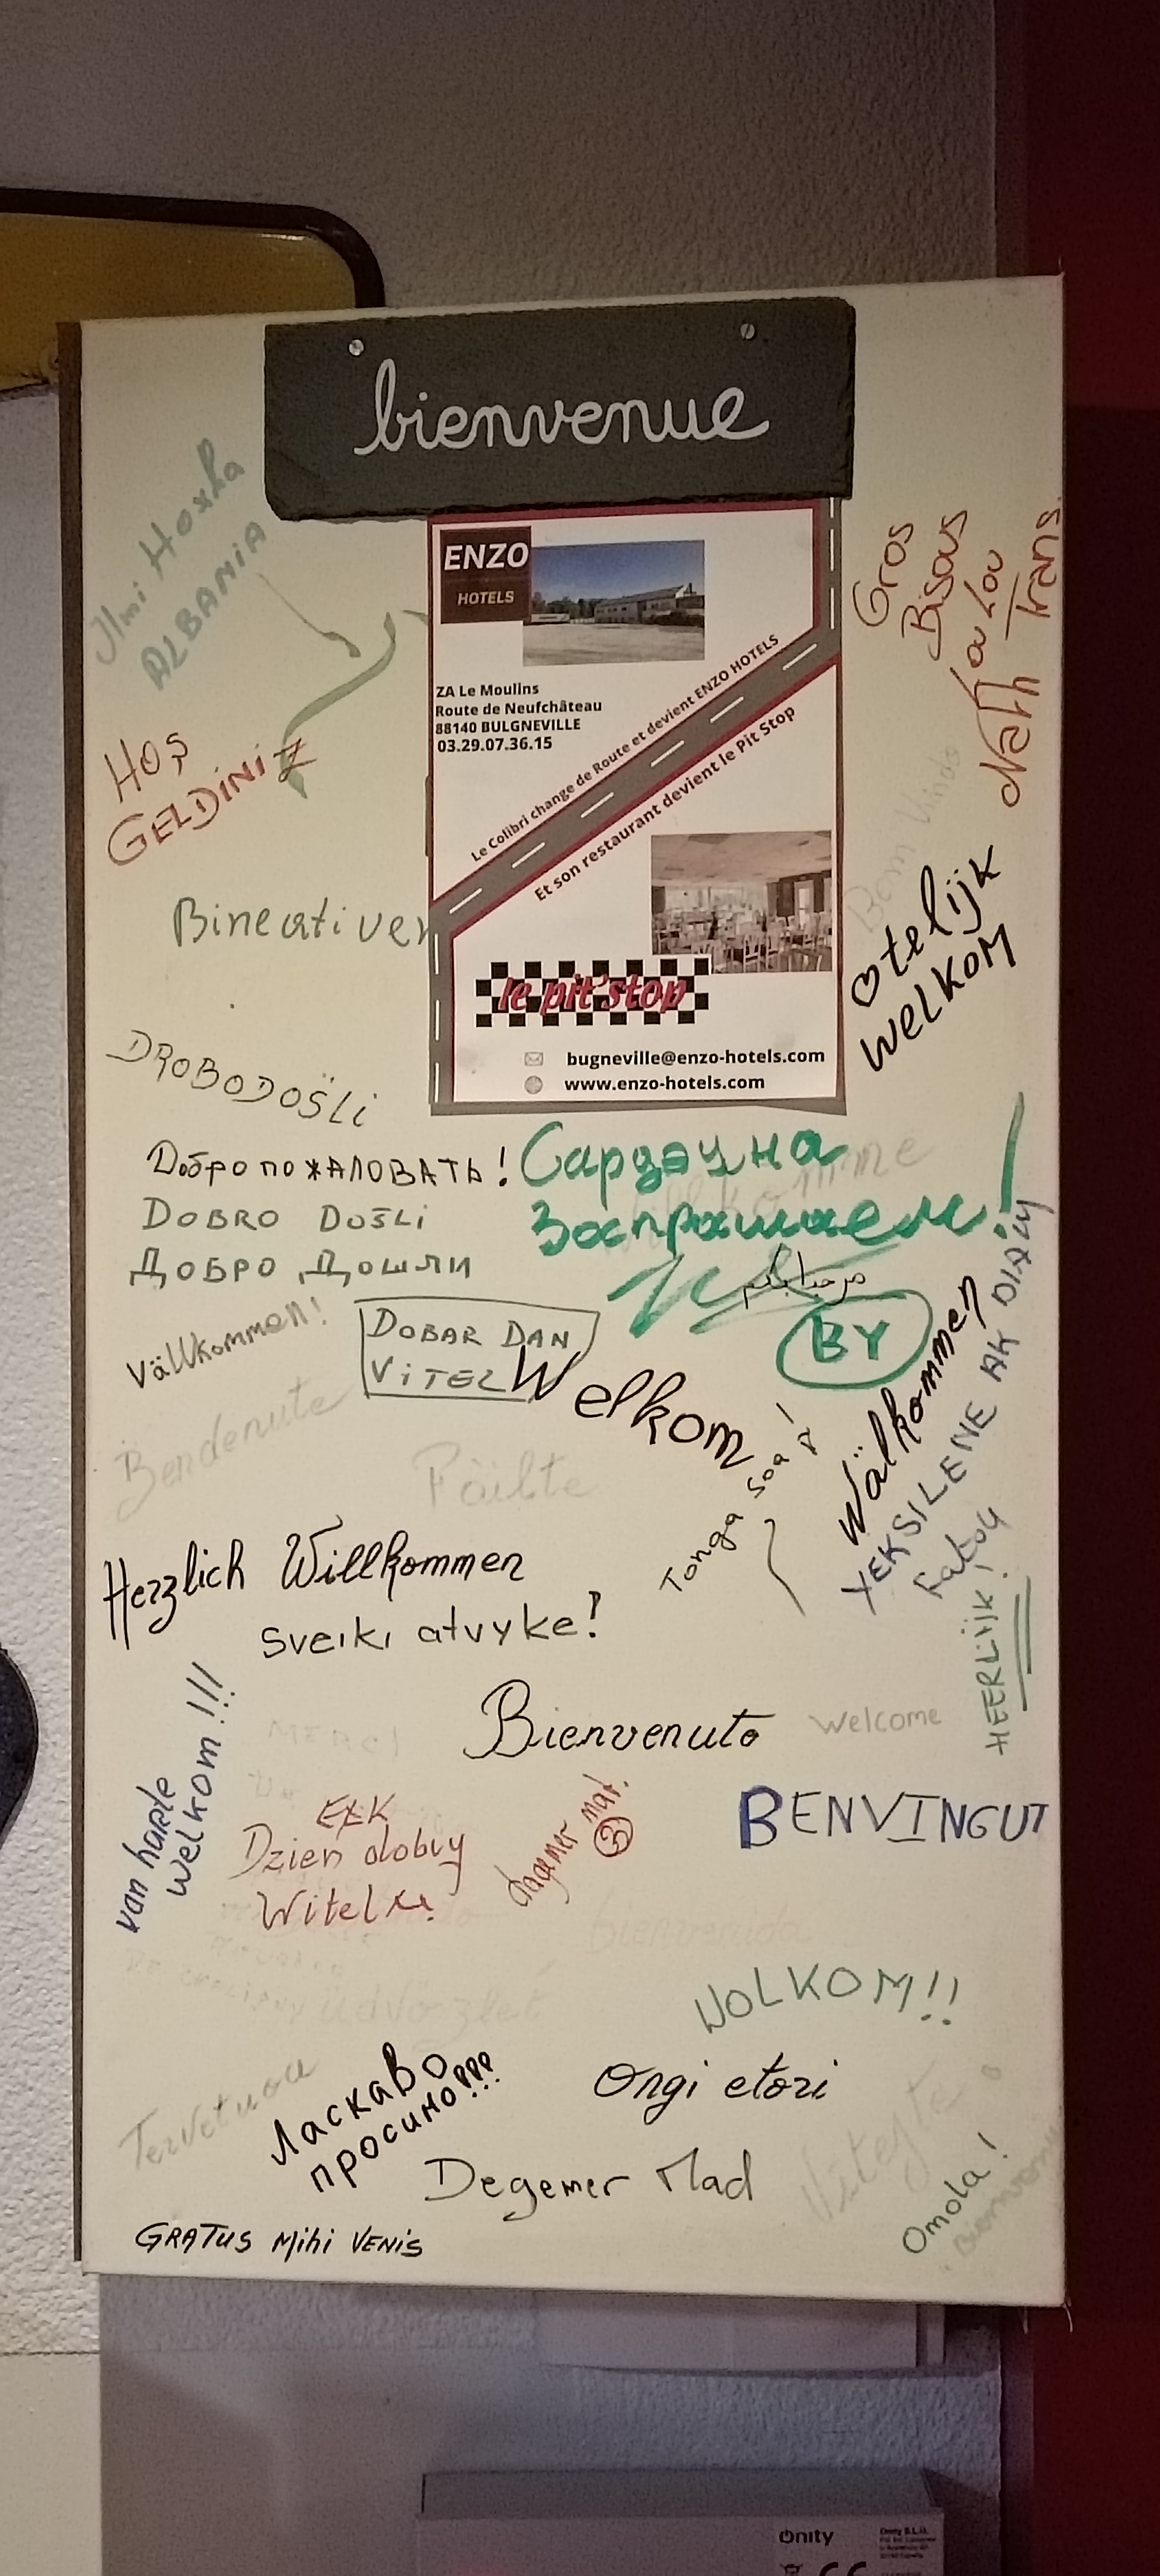 bienvenue
Ilmi Hoxha
ALBANIA
Gros
Bisous
Loulou
Nath trans.
ENZO
HOTELS
ZA Le Moulins
Route de Neufchâteau
88140 BULGNEVILLE
03.29.07.36.15
Le Colibri change de Route et devient ENZO HOTELS
Et son restaurant devient le Pit Stop
le pit'stop
bugneville@enzo-hotels.com
www.enzo-hotels.com
HOŞ
GELDİNİZ
Bom Vindo
Bineativen
telijk
WELKOM
DROBODOŠLI
Добро пожАЛОВАТЬ!
Сардэчна
Запрашаем!
DOBRO DOŠLI
ДОБРО ДОШЛИ
مرحبا بكم
BY
Vällkommen!
DOBAR DAN
VITEZ
Welkom
Wälkommen
YEKSILENE AK DIAM
Fatou
Bendenute
Fàilte
Tonga soa!
Herzlich Willkommen
sveiki atvyke!
HEERLIJK!
Bienvenuto
Welcome
MERCI
van harte
welkom!!!
BENVINGUT
EŁK
Dzien dobry
Witelm
degemer mat.
bienvenida
üdvözlet
WOLKOM!!
Tervetuoa
Ласкаво
просимо!!!
Ongi etori
Degemer Mad
Vitejte
Omola!
GRATUS Mihi VENIS
Onity
CE